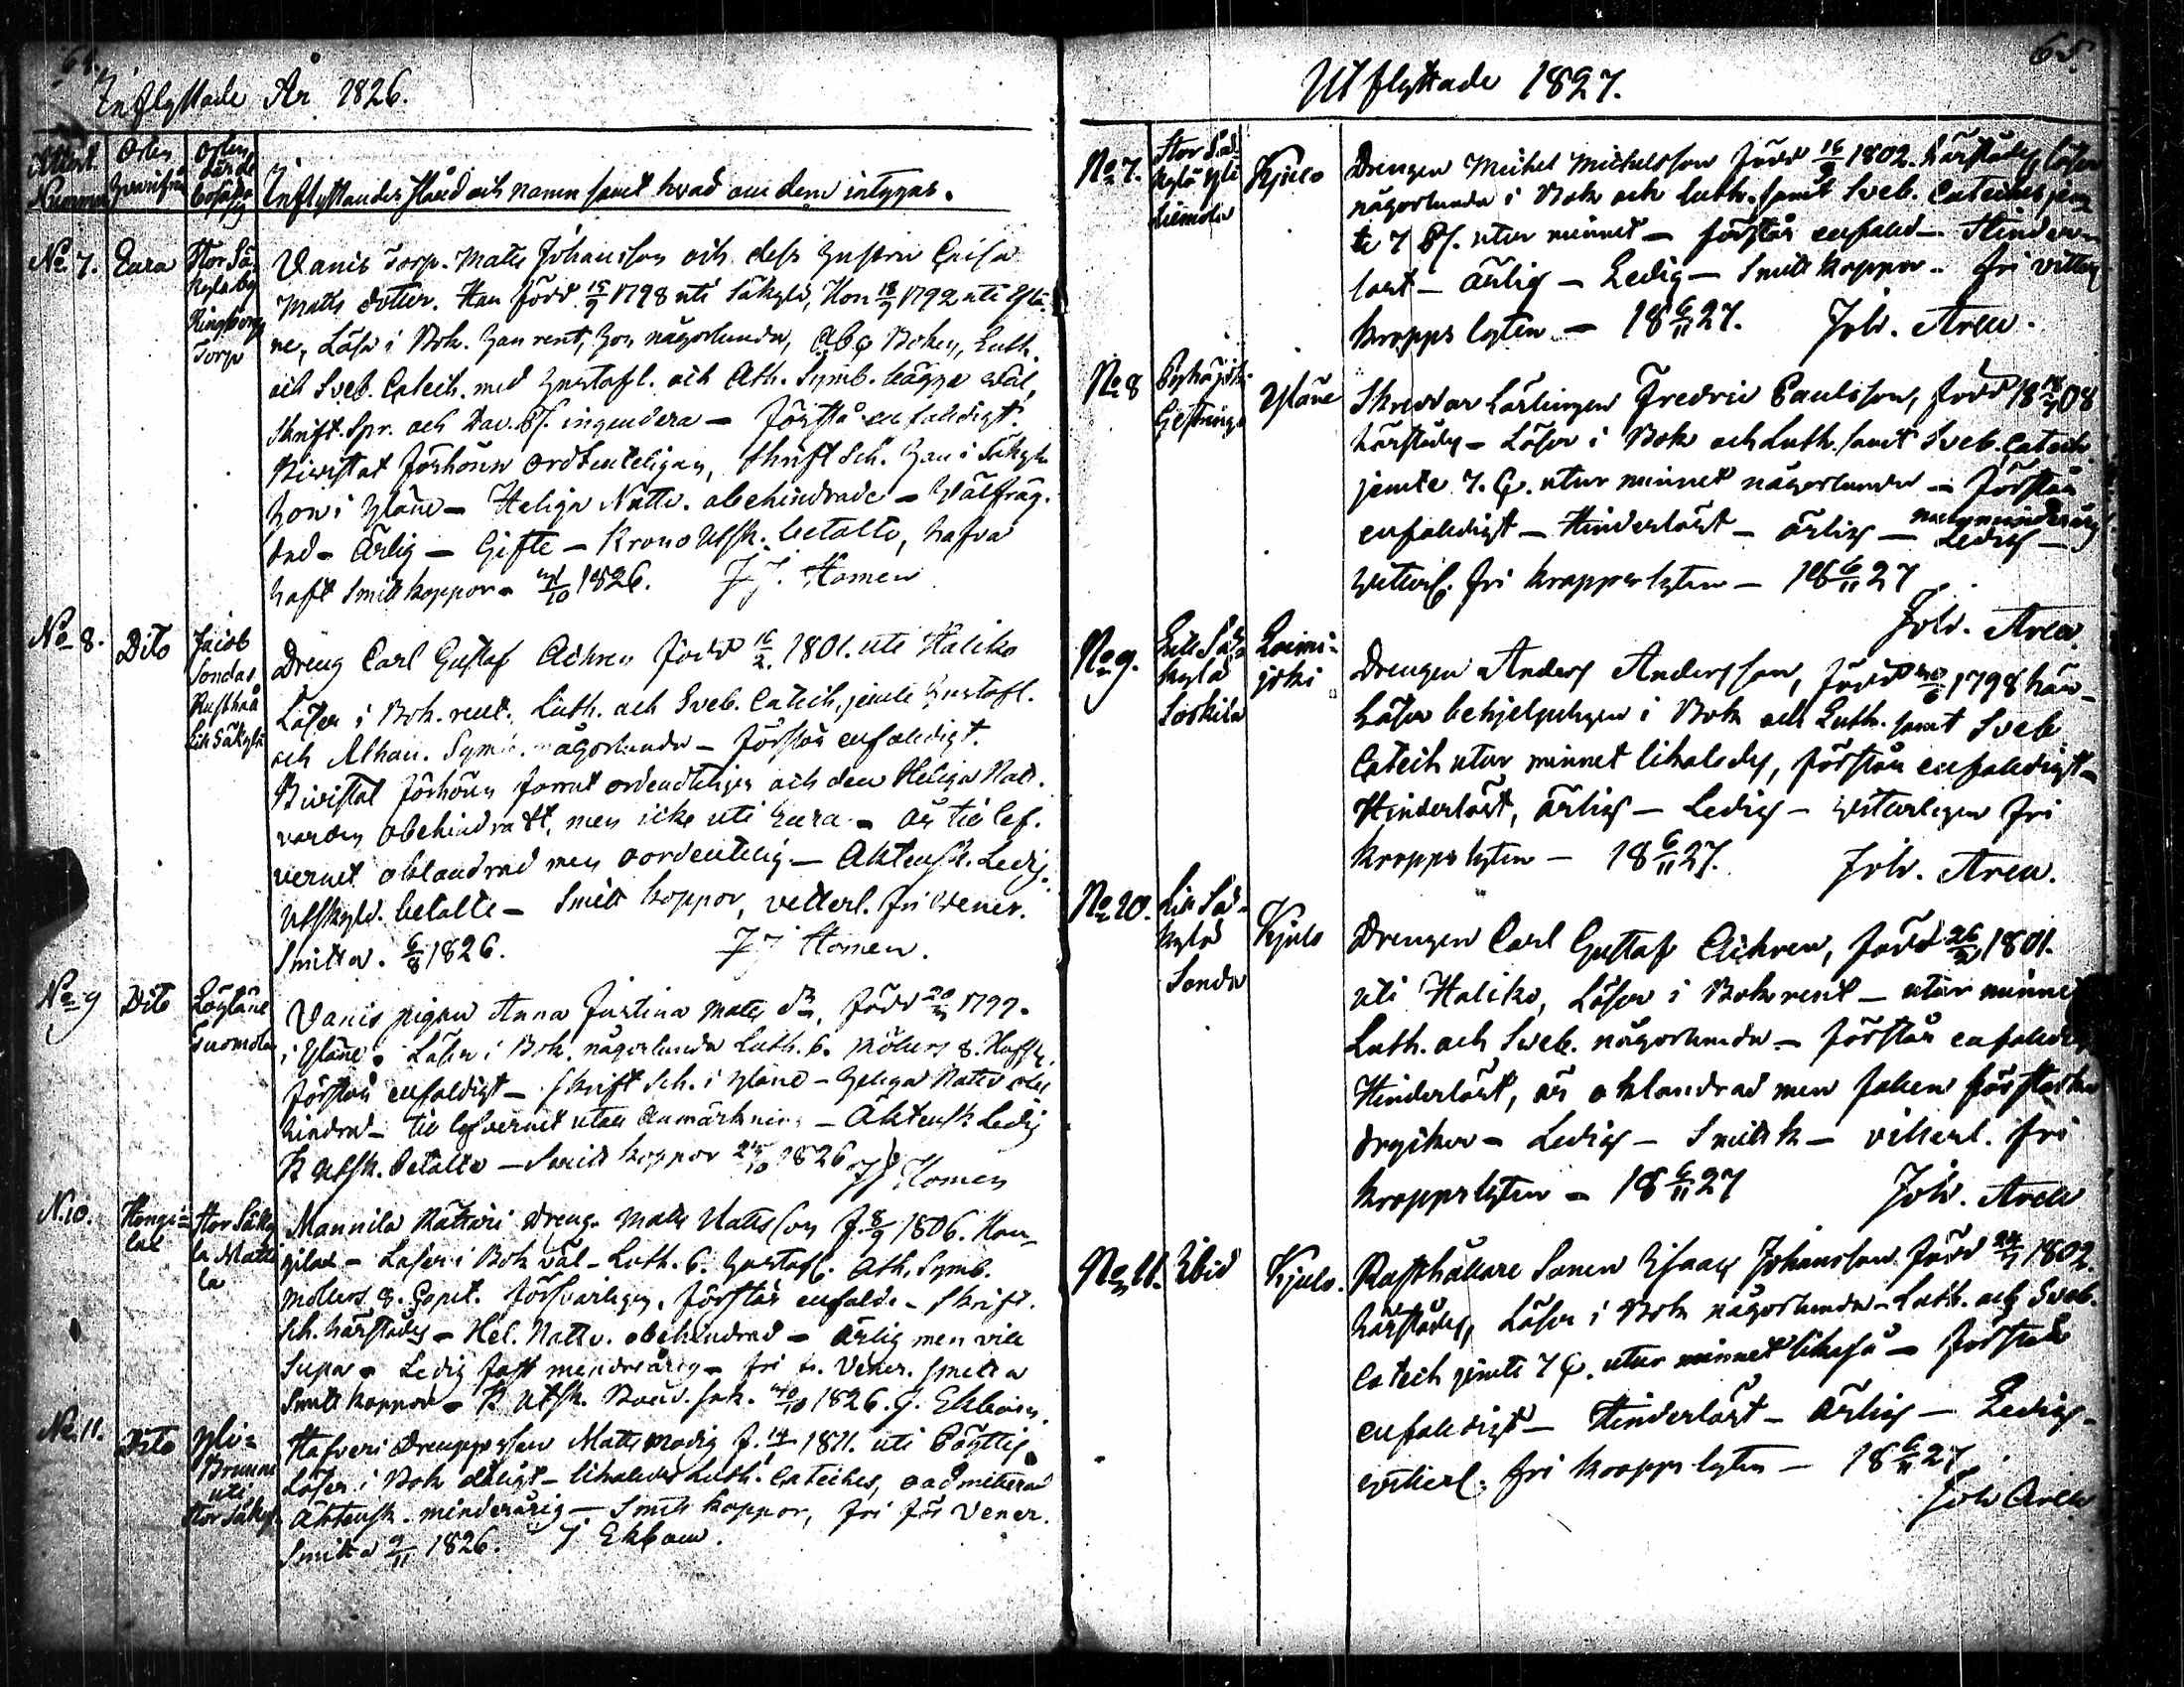 64.
Inflyttade År 1826.
Attest. Nummer
Orten hvarifrån
Orten där de bosatt sig
Inflyttandes stånd och namn samt hvad om dem intygas.
No 7. Eura
Stor Säkylä by Torp
Vanis Torp. Matts Johansson och dess hustru Caisa
Matts dotter. Han född 15/9 1798 uti Säkylä, Hon 18/9 1792 uti Ylä-
ne, Läsa i Bok. han rent, hon någorlunda, Abc Boken, Luth.
och Sveb. Catech. med Hustafl. och Ath. Symb. bägge väl,
Skrift. Spr. och Dav. Ps. ingendera - förstå enfaldigt.
Bivistat förhören ordenteligen, Skrift Sch. han i Säkylä
hon i Yläne - Heliga Nattv. obehindrade - Välfräg-
dad - Ärlig - Gifte - Krono Utsk. betalte, hafva
haft Smitt koppor - /10 1826. J J. Homen
No 8. Dito
Jacob Sonda Rusthåll Lill Säkylä
Dreng Carl Gustaf Achren född 16/2. 1801. uti Haliko
Läser i Bok. rent. Luth. och Sveb. Catech, jemte Hustafl.
och Athan. Symb. någorlunda - förstår enfaldigt.
Bivistat förhören förrut ordenteligen och den Heliga Natt-
varden obehindratt, men icke uti Eura - Är til lef-
vernet oklandrad men oordentelig - Aktensk. Ledig.
Utskyld. betalte - Smitt koppor, vetterl. fri Vener.
Smitta. 6/8 1826. J J Homen.
No 9 Dito
Löytäne Tuomola
Vanis pigan Anna Justina Matts dr, född 20/ 1797.
i Yläne. Läser i Bok. någorlunda Luth. 6. Möllers 8. Hustfl.
förstår enfaldigt - Skrift Sch. i Yläne - Heliga Nattv obe-
hindrad - til lefvernet utan Anmärkning - Äktensk Ledig
K Utsk. betalte - Smitt koppor 24/10 1826 JJ Homen
N. 10. Hongilax
Stor Säkylä Mattila
Mannila Rättari Dreng. Matts Mattsson f. 8/9 1806. Hon-
gilax - Läser i Bok väl - Luth. 6. Hustafl. Ath. Symb.
Möllers 8. Capit. försvarligen, förstår enfald. - Skrift.
Sch. härstädes - Hel. Nattv. obehindrad - Ärlig men vill
Supa - Ledig fast minderårig - fri fr. Vener. Smitta
Smitt koppor - K Utsk. 1826. J. Ekbom.
No 11. Dito
Yli- Brunni uti Stor Säkylä
Matts Modig f. 14/ 1811. uti Pöyttis
Läser i Bok dåligt - likaledes Luth. Cateches, oadmitterad
Äktensk. minderårig - Smitt koppor, fri för Vener.
Smitta 9/11 1826. J Ekbom.
65.
Utflyttade 1827.
No 7. Stor Säkylä Yli Kjulo
Drengen Michel Michelsson född 15/9 1802. härstädes, läser
någorlunda i Bok och Luth. samt Sveb. Cateches jem-
te 7 Ps. utur minnet - förstår enfald. - Hinder-
löst - ärlig - Ledig - Smitt koppor - fri vitterl.
kropps lyten - 18 6/11 27. Joh. Aren.
No 8 Pyhäjoki Yläne
Skreddar Lärlingen Fredric Paulsson, född 18 /9 08
härstädes - Läser i Bok och Luth. samt Sveb. Catech
jemte 7. Ps. utur minnet någorlunda - förstår
enfaldigt - Hinderlöst - ärlig - minderårig Ledig -
vitterl. fri kroppslyten - 18 6/11 27
Joh. Aren.
No 9. Lill Säkylä Loimijoki
Drengen Anders Andersson, född 1798 här-
Läser behjelpeligen i Bok och Luth. samt Sveb
Catech utur minnet likaledes, förstår enfaldigt -
Hinderlöst, ärlig - Ledig - vitterligen fri
kroppslyten - 18 6/11 27. Joh. Aren.
No 10. Lill Säkylä Sonda Kjulo
Drengen Carl Gustaf Achren, född 26/ 1801.
uti Haliko, Läser i Bok rent - utur minnet
Luth. och Sveb. någorlunda - förstår enfaldigt
Hinderlöst, är oklandrad men fallen för starka
drycker - Ledig - Smitt k - vitterl. fri
kroppslyten - 18 6/11 27 Joh. Aren
No 11. Ibid Kjulo.
Rusthållare Sonen Isaac Johansson född 24/ 1802.
härstädes, Läser i Bok någorlunda - Luth. och Sveb.
Catech jemte 7 Ps. utur minnet likaså - förstår
enfaldigt - Hinderlöst - Ärlig - Ledig -
vitterl. fri kroppslyten - 18 6/11 27
Joh Aren